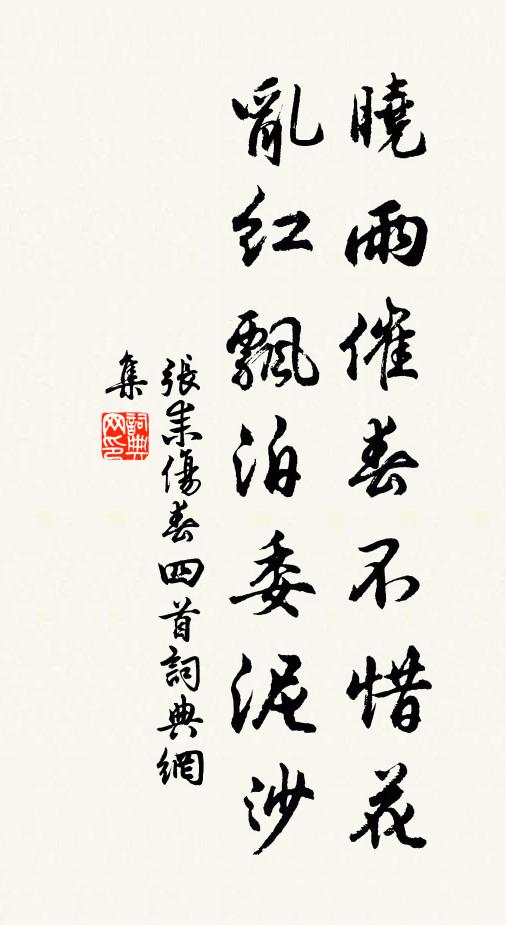 曉雨催春不惜花
亂紅飄泊委泥沙
張耒傷春四首詞典網
集
詞典網印